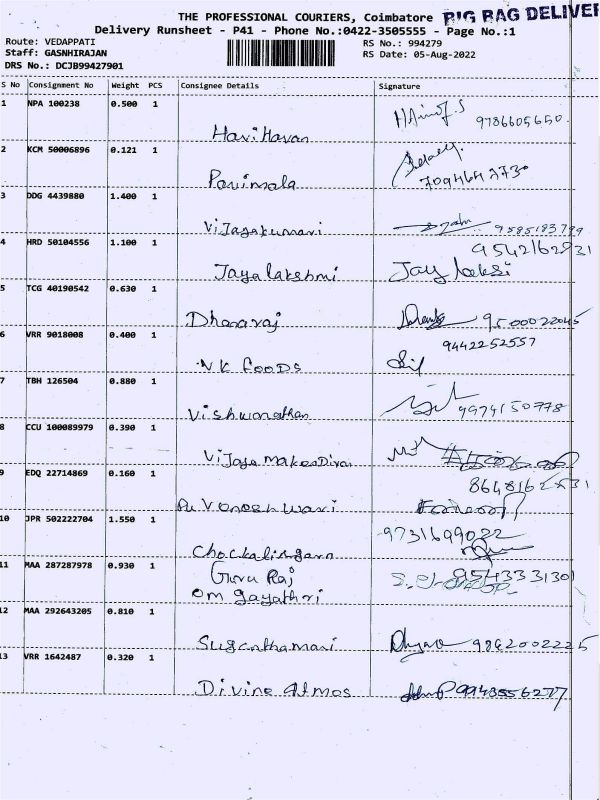 THE PROFESSIONAL COURIERS, Coimbatore BIG BAG DELIVER
Delivery Runsheet - P41 - Phone No.:0422-3505555 - Page No.:1
Route: VEDAPPATI
Staff: GASNHIRAJAN
DRS No.: DCJB99427901
RS No.: 994279
RS Date: 05-Aug-2022
S No Consignment No Weight PCS Consignee Details Signature
1 NPA 100238 0.500 1
Hariharan 9786605650
2 KCM 50006896 0.121 1
Parimala 7094642730
3 DDG 4439880 1.400 1
Vijayakumari 9585183799
4 HRD 50104556 1.100 1 9542162831
Jayalakshmi
5 TCG 40190542 0.630 1
Dhanaraj 9500022045
6 VRR 9018008 0.400 1 9442252557
NK FOODS
7 TBH 126504 0.880 1
Vishwanathan 9974150778
8 CCU 100089979 0.390 1
Vijaya
9 EDQ 22714869 0.160 1
10 JPR 502222704 1.550 1 9731699022
Chockalingam
11 MAA 287287978 0.930 1
Guru Raj 9543331301
Om gayathri
12 MAA 292643205 0.810 1
Suganthamari 9862002225
13 VRR 1642487 0.320 1
Divine Atmos 9943556277